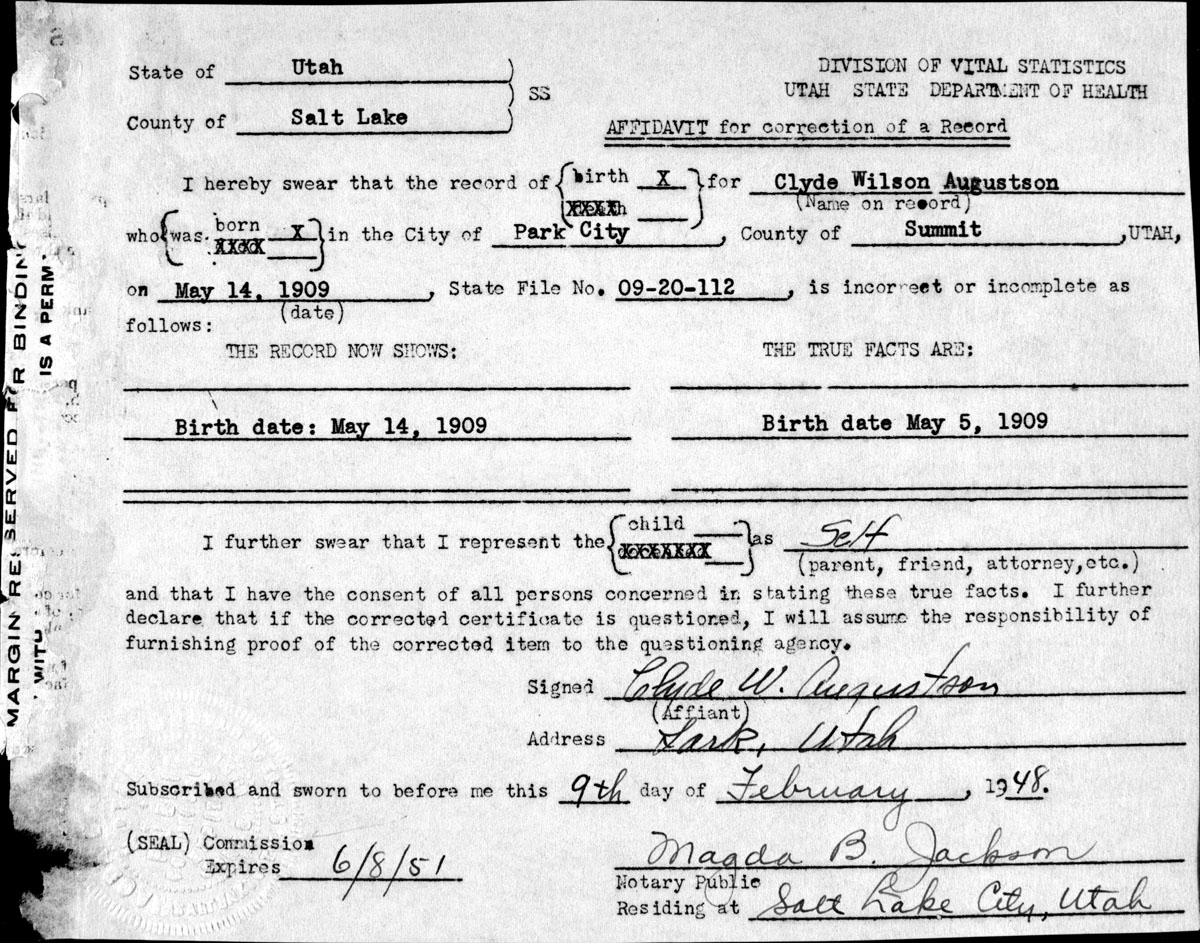 State of Utah ) DIVISION OF VITAL STATISTICS
SS UTAH STATE DEPARTMENT OF HEALTH
County of Salt Lake )
AFFIDAVIT for correction of a Record
I hereby swear that the record of { birth X } for Clyde Wilson Augustson
XXXXh (Name on record)
who { was born X } in the City of Park City, County of Summit, UTAH,
XXXX
on May 14, 1909, State File No. 09-20-112, is incorrect or incomplete as
(date)
follows:
THE RECORD NOW SHOWS: THE TRUE FACTS ARE:
Birth date: May 14, 1909 Birth date May 5, 1909
I further swear that I represent the { child } as Self
XXXXXXXX (parent, friend, attorney,etc.)
and that I have the consent of all persons concerned in stating these true facts. I further
declare that if the corrected certificate is questioned, I will assume the responsibility of
furnishing proof of the corrected item to the questioning agency.
Signed Clyde W. Augustson
(Affiant)
Address Lark, Utah
Subscribed and sworn to before me this 9th day of February, 1948.
(SEAL) Commission
Expires 6/8/51
Magda B. Jackson
Notary Public
Residing at Salt Lake City, Utah
MARGIN RESERVED FOR BINDING
IS A PERM